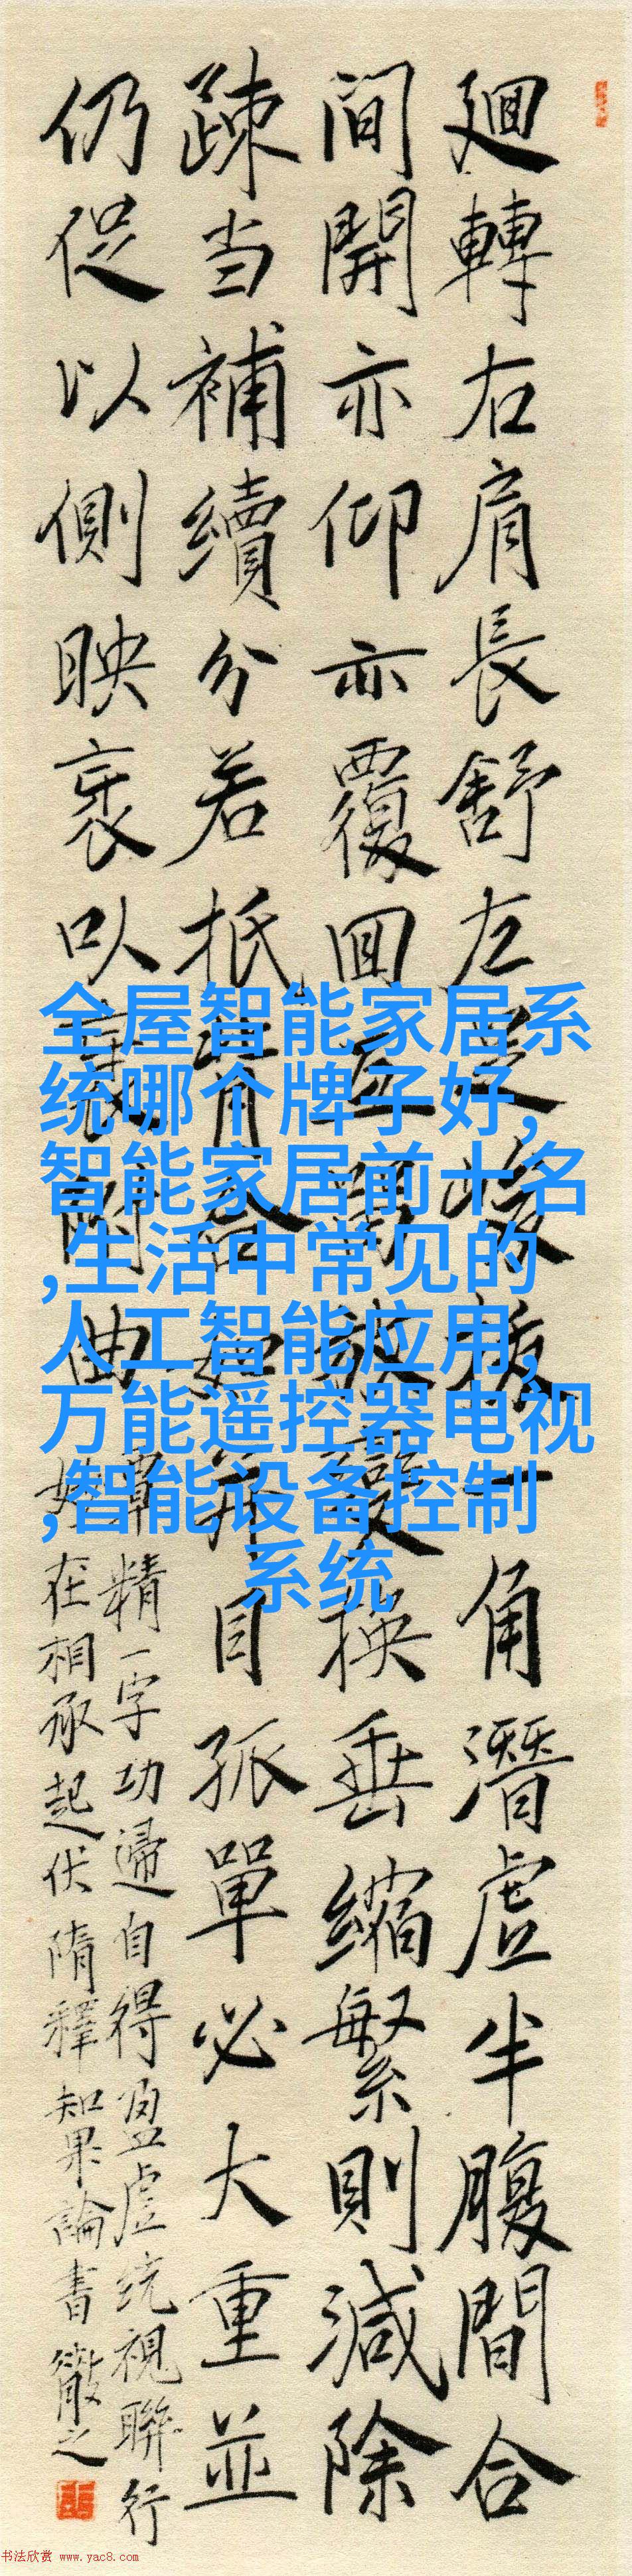 廻轉右肩長舒左足峻拔一角潛虛半腹間合
間開亦仰亦覆回互留放變換垂縮繁則減除
疎当補續分若抵背合如目孤單必大重並
仍促以側映衺以衺附曲
覃精一字功歸自得盈虛統視聯行
妙在相承起伏隋釋知果論書徹之
全屋智能家居系
统哪个牌子好,
智能家居前十名
,生活中常见的
人工智能应用,
万能遥控器电视
,智能设备控制
系统
书法欣赏 www.yac8.com